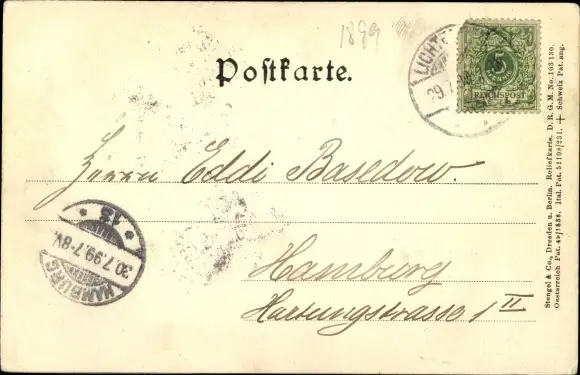 1899
Postkarte.
LICHTE
29.7
5
REICHSPOST
Herrn Eddi Basedow.
Hamburg
Hartungstrasse 1 II
HAMBURG
30.7.99.7-8V.
* 13 *
Stengel & Co., Dresden u. Berlin. Reliefkarte. D. R. G. M. No. 103 130.
Oesterreich Pat. 49/1838. Ital. Pat. 51108/231. + Schweiz Pat. ang.